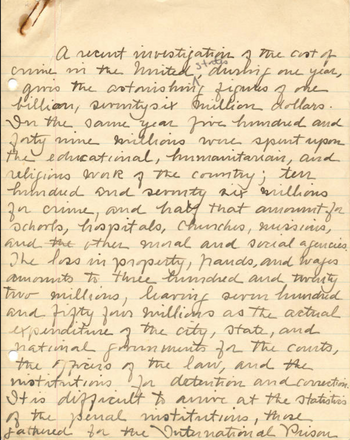 A recent investigation of the cost of
crime in the United States, during one year,
gives the astonishing figures of one
billion, seventysix million dollars.
In the same year five hundred and
forty nine millions were spent upon
the educational, humanitarian, and
religious work of the country; ten
hundred and seventy six millions
for crime, and half that amount for
schools, hospitals, churches, missions,
and the other moral and social agencies.
The loss in property, frauds, and wages
amounts to three hundred and twenty
two millions, leaving seven hundred
and fifty four millions as the actual
expenditure of the city, state, and
national governments for the courts,
the officers of the law, and the
institutions for detention and correction.
It is difficult to arrive at the statistics
of the penal institutions, those
gathered for the International Prison